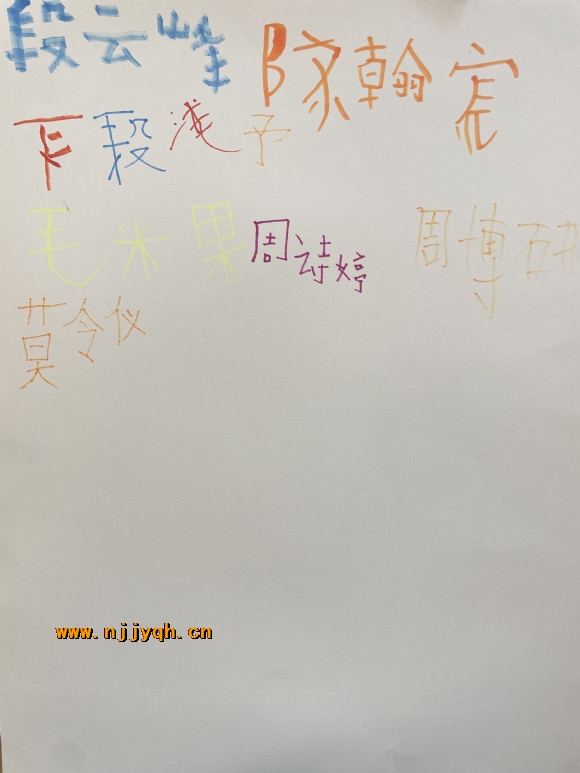 段云峰 陈翰霆
卞 段浅予
毛米果 周诗婷 周博研
莫令仪
www.njjyqh.cn